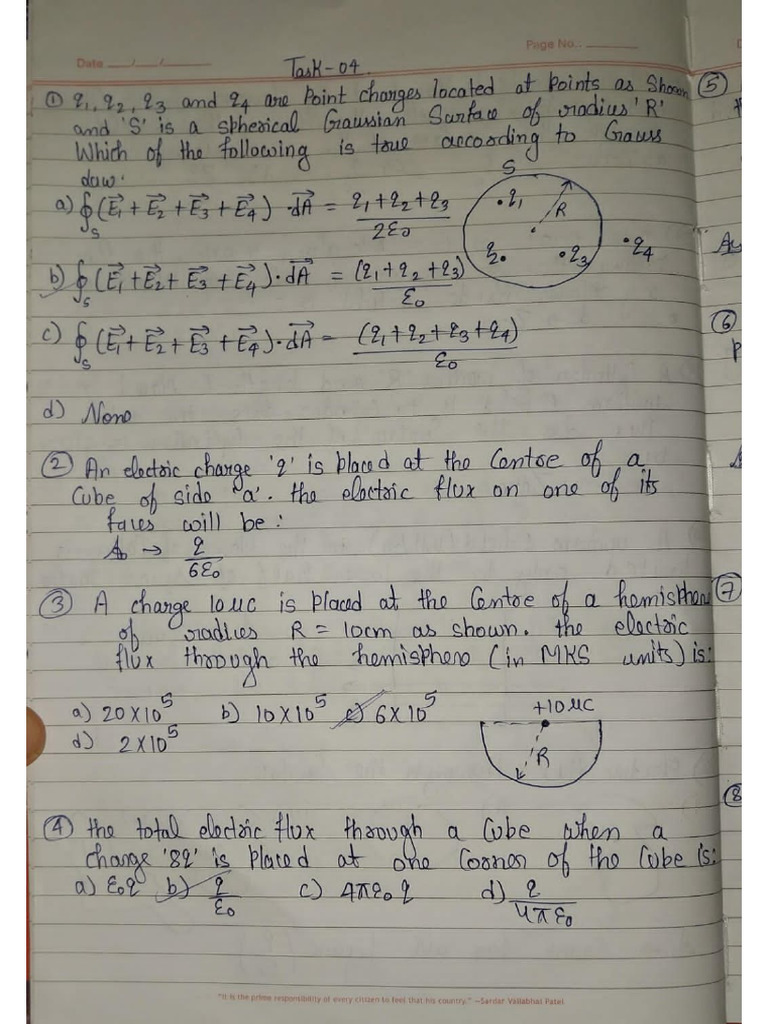 Page No.:
Date
Task-04
① q1, q2, q3 and q4 are Point charges located at Points as Shown
and 'S' is a spherical Gaussian Surface of radius 'R'
Which of the following is true according to Gauss
Law.
a) ∮s (E1 + E2 + E3 + E4) · dA = q1+q2+q3 / 2ε0
b) ∮s (E1 + E2 + E3 + E4) · dA = (q1+q2+q3) / ε0
c) ∮s (E1 + E2 + E3 + E4) · dA = (q1+q2+q3+q4) / ε0
d) None
S
q1
R
q2
q3
q4
② An electric charge 'q' is placed at the Centre of a
Cube of side "a'. the electric flux on one of its
faces will be:
→ q / 6ε0
③ A charge 10μc is placed at the Centre of a hemisphere
of radius R = 10cm as shown. the electric
flux through the hemisphere (in MKS units) is:
a) 20×10^5 b) 10×10^5 c) 6×10^5
d) 2×10^5
+10μC
R
④ the total electric flux through a Cube when a
charge '8q' is placed at one Corner of the Cube is:
a) ε0q b) q / ε0 c) 4πε0q d) q / 4πε0
⑤
⑥
⑦
⑧
"It is the prime responsibility of every citizen to feel that his country." —Sardar Vallabhai Patel